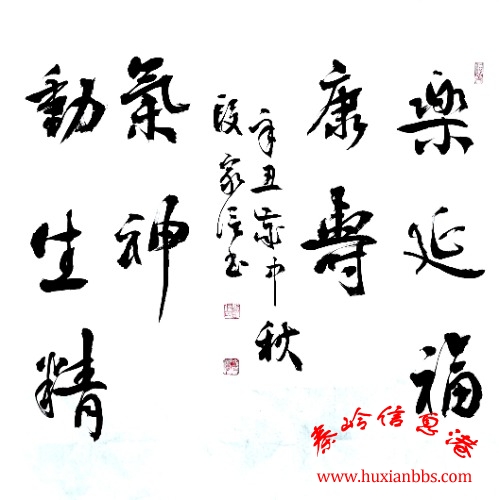 樂延福
康壽
動生精
氣神
辛丑歲中秋
段家信书
秦岭信息港
www.huxianbbs.com